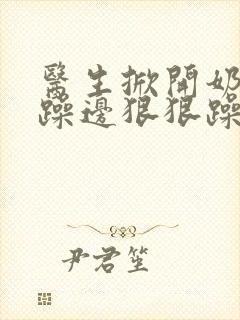 醫生掀開奶
躁邊狠狠躁
尹君笙